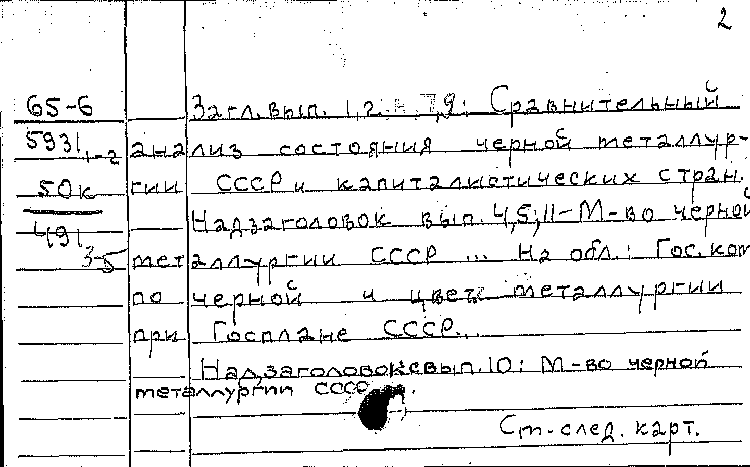 2
65-6 Загл. вып. 1,2, 7,9: Сравнительный
5931 1-2 анализ состояния черной металлур-
50к гии СССР и капиталистических стран.
Надзаголовок вып. 4,5,11 - М-во черной
491 3-5 металлургии СССР ... На обл.: Гос. ком
по черной и цветн металлургии
при Госплане СССР...
Надзаголовок вып. 10: М-во черной
металлургии СССР
См. след. карт.